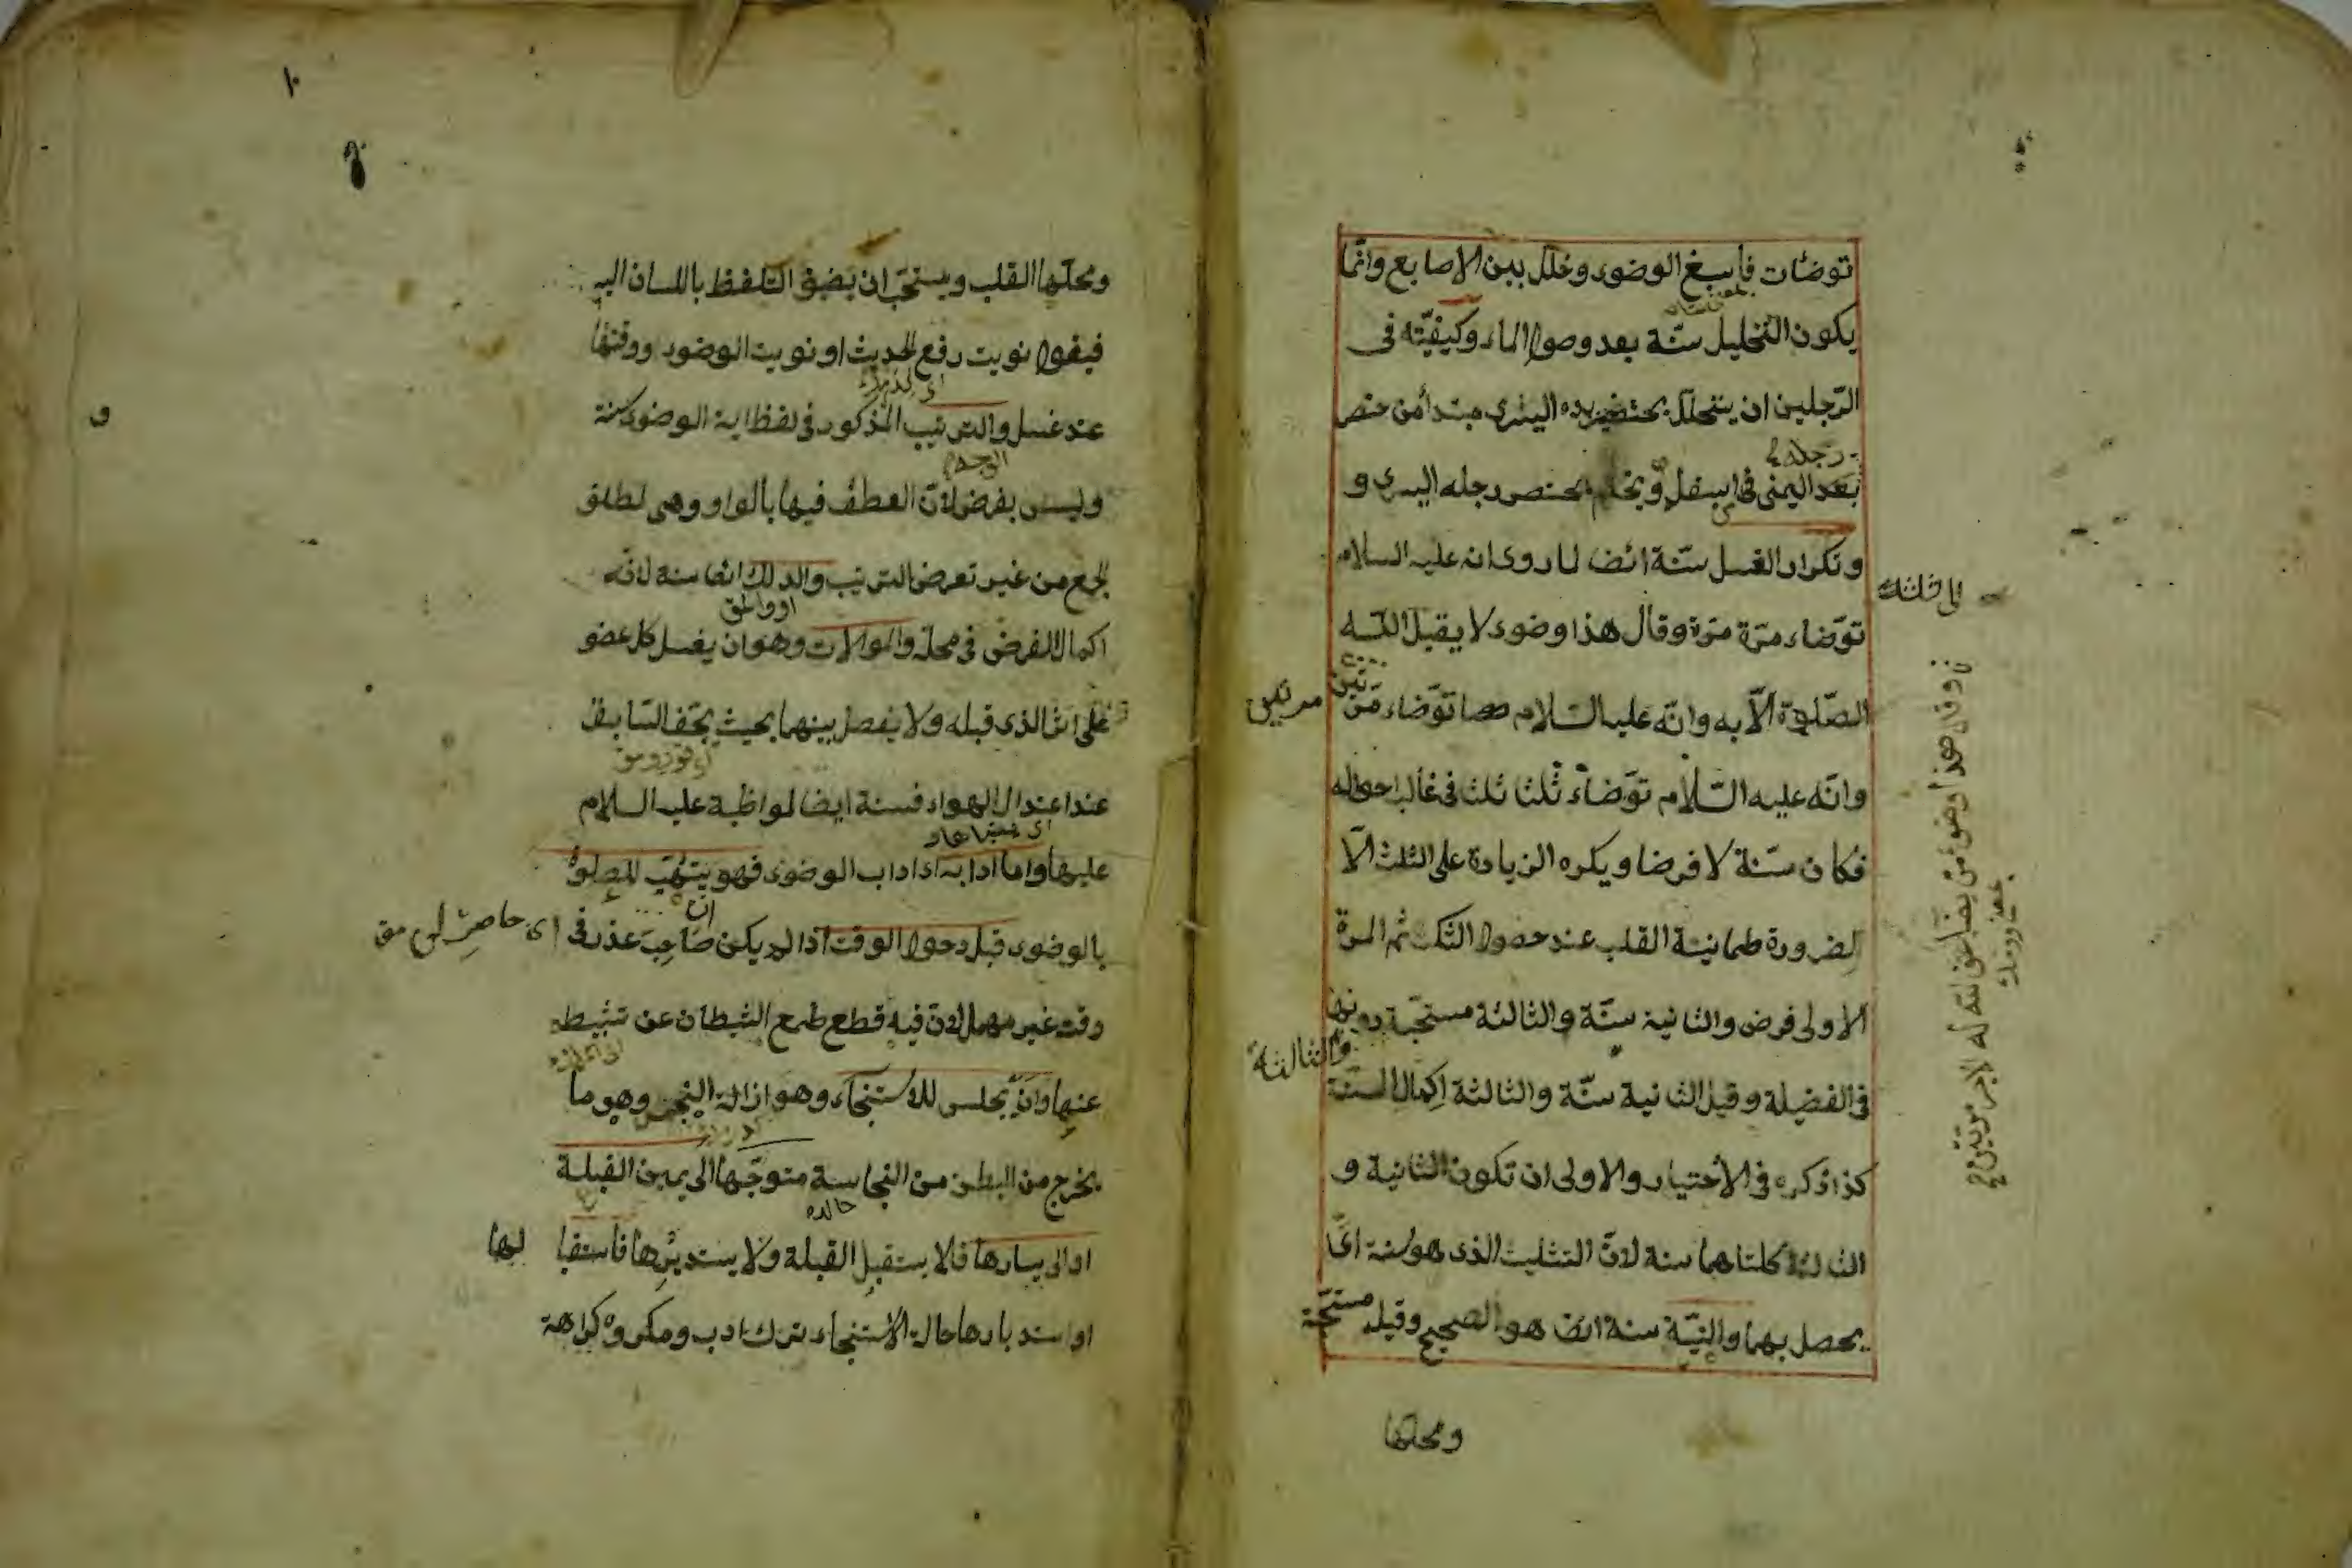 توضات فاسبغ الوضوء وخلل بين الاصابع وانما
يكون التخليل سنّة بعد وصول الماء وكيفيّته فى
الرّجلين ان يتخلل بخنصر يده اليسرى مبتدأ من خنصر
رجله
بعد اليمنى فى اسفل و بخنصر رجله اليسرى و
وتكرار الغسل سنّة ايضا لما روى انه عليه السلام
الى ثلث
توّضاء مرّة مرّة وقال هذا وضوء لا يقبل اللّه
الصّلوة الّا به وانّه عليه السّلام توّضاء مرّتين
مرتين
وانّه عليه السّلام توّضاء ثلثا ثلثا فى غالب احواله
فكان سنّة لا فرضا ويكره الزيادة على الثلث الّا
لضرورة طمانينة القلب عند حصول الشك ثم المرة
الاولى فرض والثانية سنّة والثالثة مستحبّة دونها
والثالثة
فى الفضيلة وقيل الثانية سنّة والثالثة اكمال السنّة
كذا ذكره فى الاختيار والاولى ان تكون الثانية و
الثالثة كلتاهما سنة لانّ التثليث الذى هو سنة انّما
يحصل بهما والنيّة سنة ايضا هو الصحيح وقيل مستحبّة
ومحلّها
وقال هذا وضوء من يضاعف الله له الاجر مرّتين
١٠
ومحلّها القلب ويستحبّ ان يضيف التلفظ باللسان اليه
فيقول نويت رفع الحديث او نويت الوضوء ووقتها
عند غسل والترتيب المذكور فى لفظ اية الوضوء سنة
الوجه
وليس بفرض لانّ العطف فيها بالواو وهى لمطلق
الجمع من غير تعرض الترتيب والدلك ايضا سنة لانّه
اكمال الفرض فى محلّه والموالات وهو ان يغسل كل عضو
على اثر الذى قبله ولا يفصل بينهما بحيث يجّف السّابق
عند اعتدال الهواء فسنة ايضا لمواظبة عليه السلام
عليها واما ادابه اى اداب الوضوء فهو يتهّب للصلوة
بالوضوء قبل دحول الوقت اذا لم يكن صاحب عذر فى
وقت غير مهمل لانّ فيه قطع طمع الشيطان عن تثبيطه
عنها وان يجلس للاستنجاء وهو ازالة النجس وهو ما
يخرج من البطن من النجاسة متوجّها الى يمين القبلة
او الى يسارها فلا يستقبل القبلة ولا يستدبرها فاستقبا لها
او استدبارها حالة الاستنجاء ترك ادب ومكروه كراهة